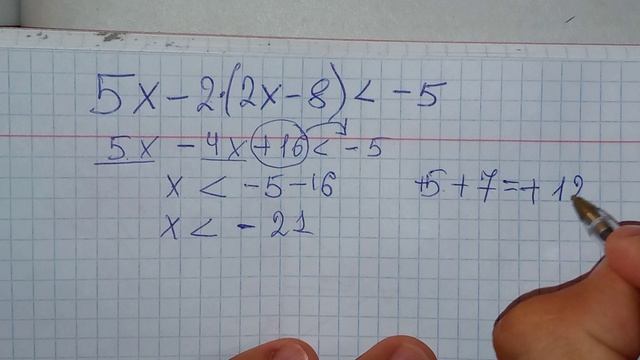 5x - 2·(2x - 8) < - 5
5x - 4x + 16 < - 5
x < - 5 - 16
x < - 21
+5 + 7 = + 12